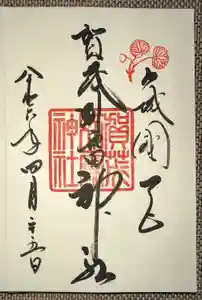 山城國
賀茂別雷神社
賀茂
神社
令和六年四月二十五日